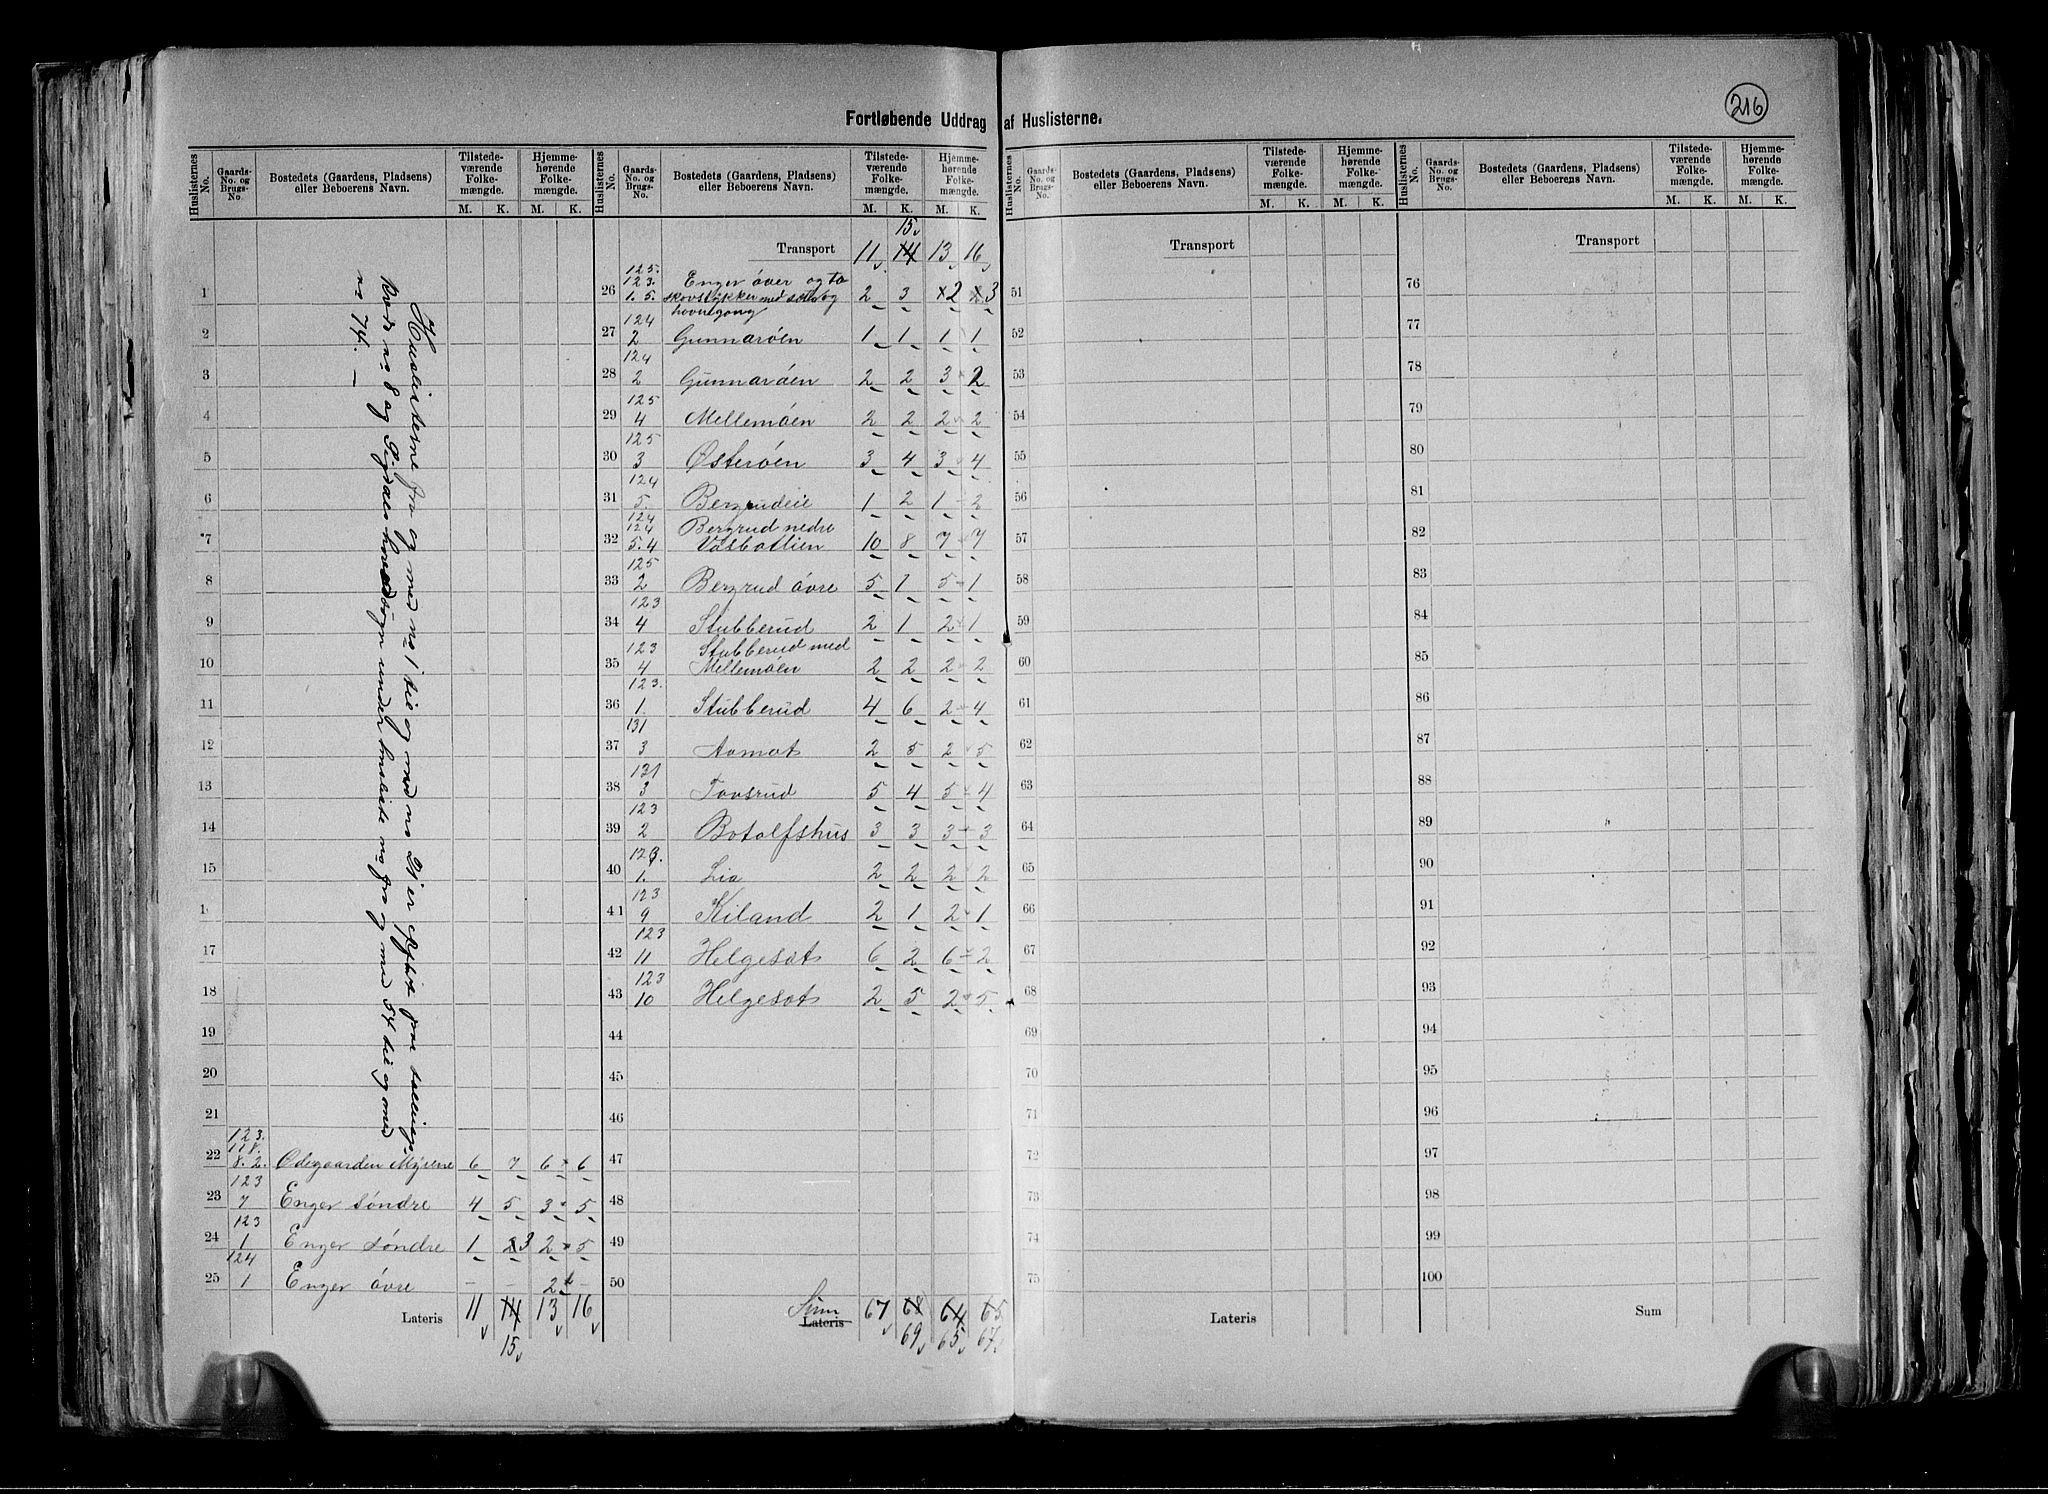 216
Fortløbende Uddrag af Huslisterne.
Huslisternes No. Gaards-No. og Brugs-No. Bostedets (Gaardens, Pladsens) eller Beboerens Navn. Tilstedeværende Folkemængde. M. K. Hjemmehørende Folkemængde. M. K.
Huslisterne fra og med no 1 til og med no 21 er afgit
Kreds no 8 og Sigdals under husliste no fra og med 54 til og med
no 74. —
1
2
3
4
5
6
7
8
9
10
11
12
13
14
15
1
17
18
19
20
21
22 123. 118. 8. 2. Ødegaarden Myrene 6 7 6 6
23 123 7 Enger søndre 4 5 3 5
24 123 1 Enger søndre 1 2 3 2 5
25 124 1 Enger øvre - - 2 -
Lateris 11 14 13 16
15
Huslisternes No. Gaards-No. og Brugs-No. Bostedets (Gaardens, Pladsens) eller Beboerens Navn. Tilstedeværende Folkemængde. M. K. Hjemmehørende Folkemængde. M. K.
15
Transport 11 14 13 16
26 125. 123. 1. 5. Enger øver og to skovstykker med 2 3 2 3
havnegang
27 124 2 Gunnarøen 1 1 1 1
28 124 2 Gunnarøen 2 2 3 2
29 125 4 Mellemøen 2 2 2 2
30 125 3 Østerøen 3 4 3 4
31 124 5. Bergrudeie 1 2 1 2
32 124 124 5. 4 Bergrud nedre Vasbotlien 10 8 7 7
33 125 2 Bergrud øvre 5 1 5 1
34 123 4 Stubberud 2 1 2 1
35 123 4 Stubberud med Mellemøen 2 2 2 2
36 123. 1. Stubberud 4 6 2 4
37 131 3 Aamot 2 5 2 5
38 131 3 Tovsrud 5 4 5 4
39 123 2 Botolfshus 3 3 3 3
40 123. 1. Lia 2 2 2 2
41 123 9 Kiland 2 1 2 1
42 123 11 Helgesat 6 2 6 2
43 123 10 Helgesat 2 5 2 5
44
45
46
47
48
49
50
Sum Lateris 67 68 64 65
69 65 67
Huslisternes No. Gaards-No. og Brugs-No. Bostedets (Gaardens, Pladsens) eller Beboerens Navn. Tilstedeværende Folkemængde. M. K. Hjemmehørende Folkemængde. M. K.
Transport
51
52
53
54
55
56
57
58
59
60
61
62
63
64
65
66
67
68
69
70
71
72
73
74
75
Lateris
Huslisternes No. Gaards-No. og Brugs-No. Bostedets (Gaardens, Pladsens) eller Beboerens Navn. Tilstedeværende Folkemængde. M. K. Hjemmehørende Folkemængde. M. K.
Transport
76
77
78
79
80
81
82
83
84
85
86
87
88
89
90
91
92
93
94
95
96
97
98
99
100
Sum